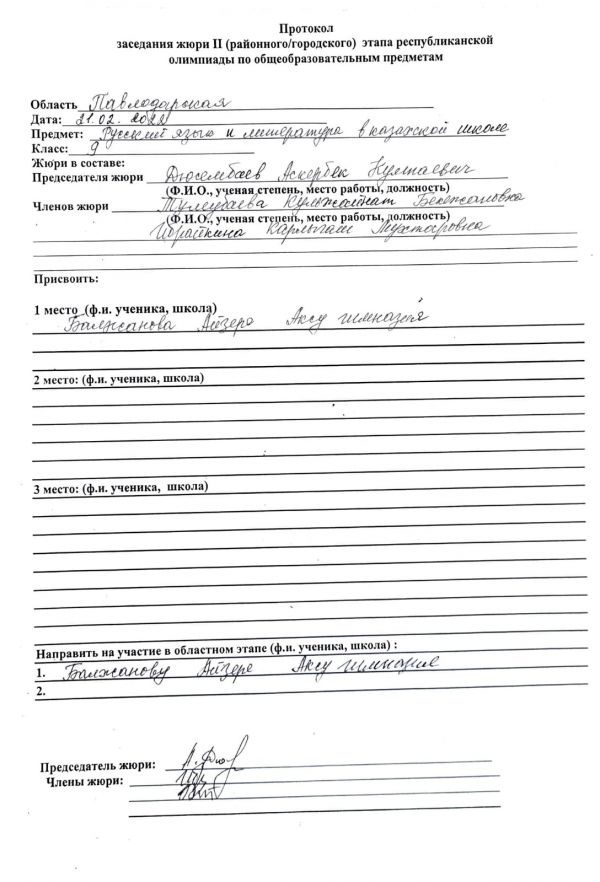 Протокол
заседания жюри II (районного/городского) этапа республиканской
олимпиады по общеобразовательным предметам
Область Павлодарская
Дата: 21.02.2022
Предмет: Русский язык и литература в казахской школе
Класс: 9
Жюри в составе:
Председателя жюри Дюсембаев Аскербек
(Ф.И.О., ученая степень, место работы, должность)
Членов жюри Тулеубаева
(Ф.И.О., ученая степень, место работы, должность)
Карлыгаш Мухтаровна
Присвоить:
1 место (ф.и. ученика, школа)
Балжанова Айзере Аксу гимназия
2 место: (ф.и. ученика, школа)
3 место: (ф.и. ученика, школа)
Направить на участие в областном этапе (ф.и. ученика, школа) :
1. Балжанову Айзере Аксу гимназия
2.
Председатель жюри:
Члены жюри: